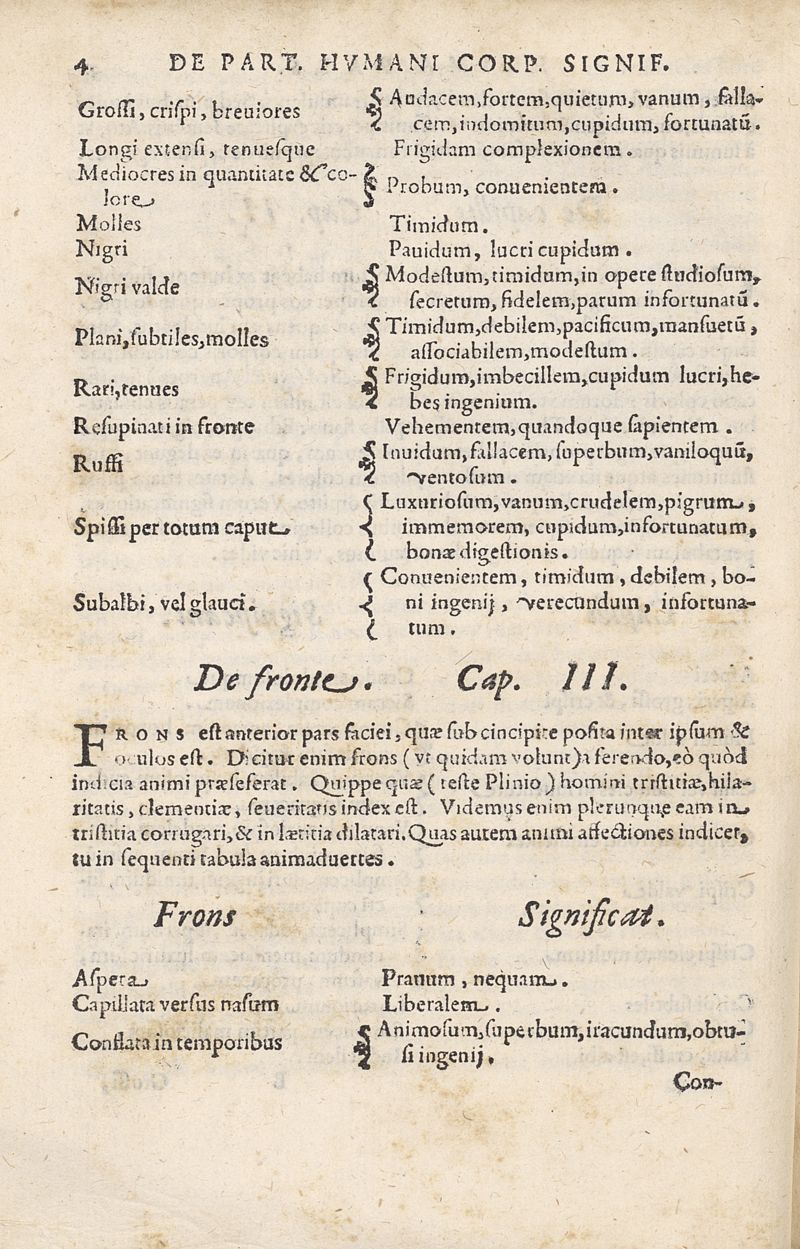 4 DE PART. HVMANI CORP. SIGNIF.
Grossi, crispi, breuiores
Audacem, fortem, quietum, vanum, falla-
cem, indomitum, cupidum, fortunatū.
Longi extensi, tenuesque Frigidam complexionem.
Mediocres in quantitate & co-
lore
Probum, conuenientem.
Molles Timidum.
Nigri Pauidum, lucri cupidum.
Nigri valde
Modestum, timidum, in opere studiosum,
secretum, fidelem, parum infortunatū.
Plani, subtiles, molles
Timidum, debilem, pacificum, mansuetū,
associabilem, modestum.
Rari, tenues
Frigidum, imbecillem, cupidum lucri, he-
bes ingenium.
Resupinati in fronte Vehementem, quandoque sapientem.
Ruffi
Inuidum, fallacem, superbum, vaniloquū,
ventosum.
Spissi per totum caput
Luxuriosum, vanum, crudelem, pigrum,
immemorem, cupidum, infortunatum,
bonæ digestionis.
Subalbi, vel glauci.
Conuenientem, timidum, debilem, bo-
ni ingenij, verecundum, infortuna-
tum.
De fronte. Cap. III.
FRONS est anterior pars faciei, quæ sub cincipite posita inter ipsum &
oculos est. Dicitur enim frons (vt quidam volunt) a ferendo, eò quòd
indicia animi præseferat. Quippe quæ (teste Plinio) homini tristitiæ, hila-
ritatis, clementiæ, seueritatis index est. Videmus enim plerunque eam in
tristitia corrugari, & in lætitia dilatari. Quas autem animi affectiones indicet,
tu in sequenti tabula animaduertes.
Frons Significat.
Aspera Prauum, nequam.
Capillata versus nasum Liberalem.
Conflata in temporibus
Animosum, superbum, iracundum, obtu-
si ingenij.
Con-